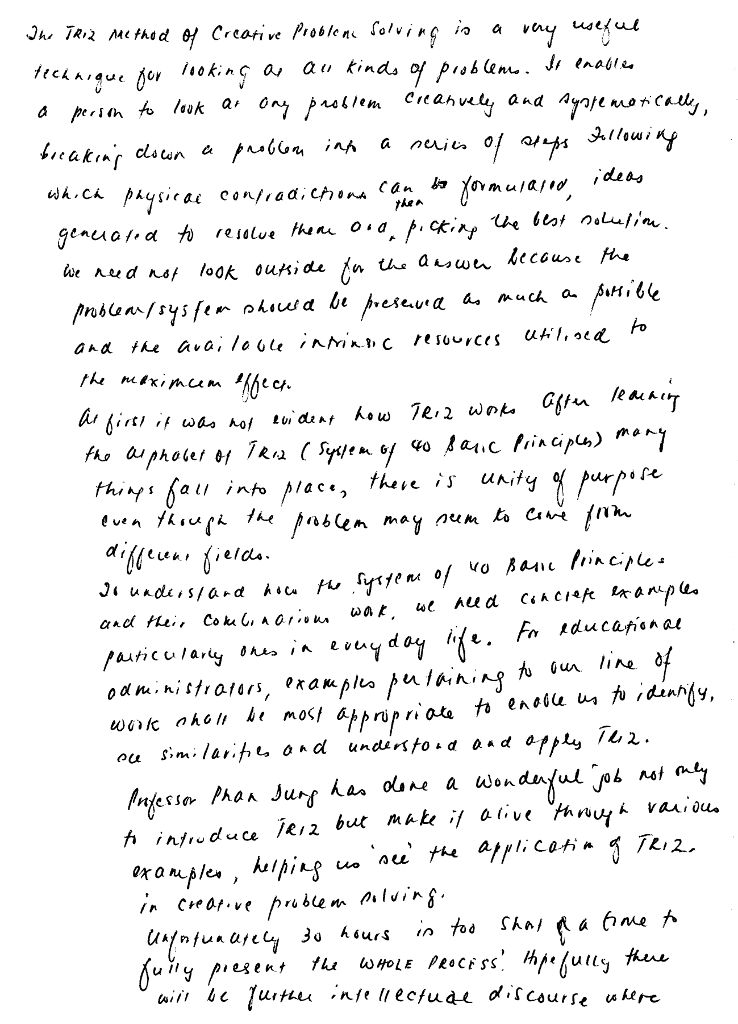 The TRIZ Method of Creative Problem Solving is a very useful
technique for looking at all kinds of problems. It enables
a person to look at any problem creatively and systematically,
breaking down a problem into a series of steps following
which physical contradictions can be formulated, ideas
generated to resolve them and then picking the best solution.
We need not look outside for the answer because the
problem/system should be preserved as much as possible
and the available intrinsic resources utilised to
the maximum effect.
At first it was not evident how TRIZ works After learning
the alphabet of TRIZ (System of 40 Basic Principles) many
things fall into place, there is unity of purpose
even though the problem may seem to come from
different fields.
To understand how the System of 40 Basic Principles
and their combinations work, we need concrete examples
particularly ones in everyday life. For educational
administrators, examples pertaining to our line of
work shall be most appropriate to enable us to identify,
see similarities and understand and apply TRIZ.
Professor Phan Dung has done a wonderful job not only
to introduce TRIZ but make it alive through various
examples, helping us 'see' the application of TRIZ.
in creative problem solving.
Unfortunately 30 hours is too short a time to
fully present the WHOLE PROCESS! Hopefully there
will be further intellectual discourse where